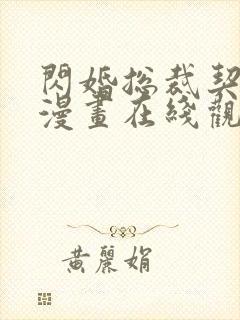 閃婚総裁契
漫畫在綫觀
黃麗娟